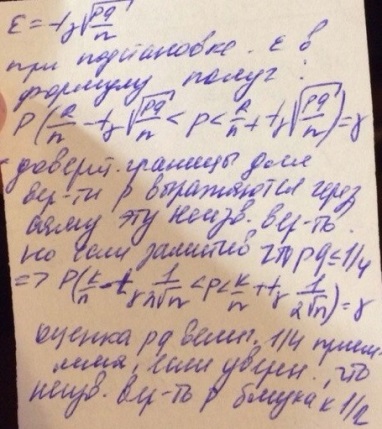 ε = t_γ √(pq/n)
при подстановке ε в
формулу получ:
P(k/n - t_γ √(pq/n) < p < k/n + t_γ √(pq/n)) = γ
доверит. границы для
вер-ти p выражаются через
саму эту неизв. вер-ть.
но если заметив что pq ≤ 1/4
=> P(k/n - t_γ 1/2√n < p < k/n + t_γ 1/2√n) = γ
оценка pq велич. 1/4 прием-
лема, если уверен., что
неизв. вер-ть p близка к 1/2